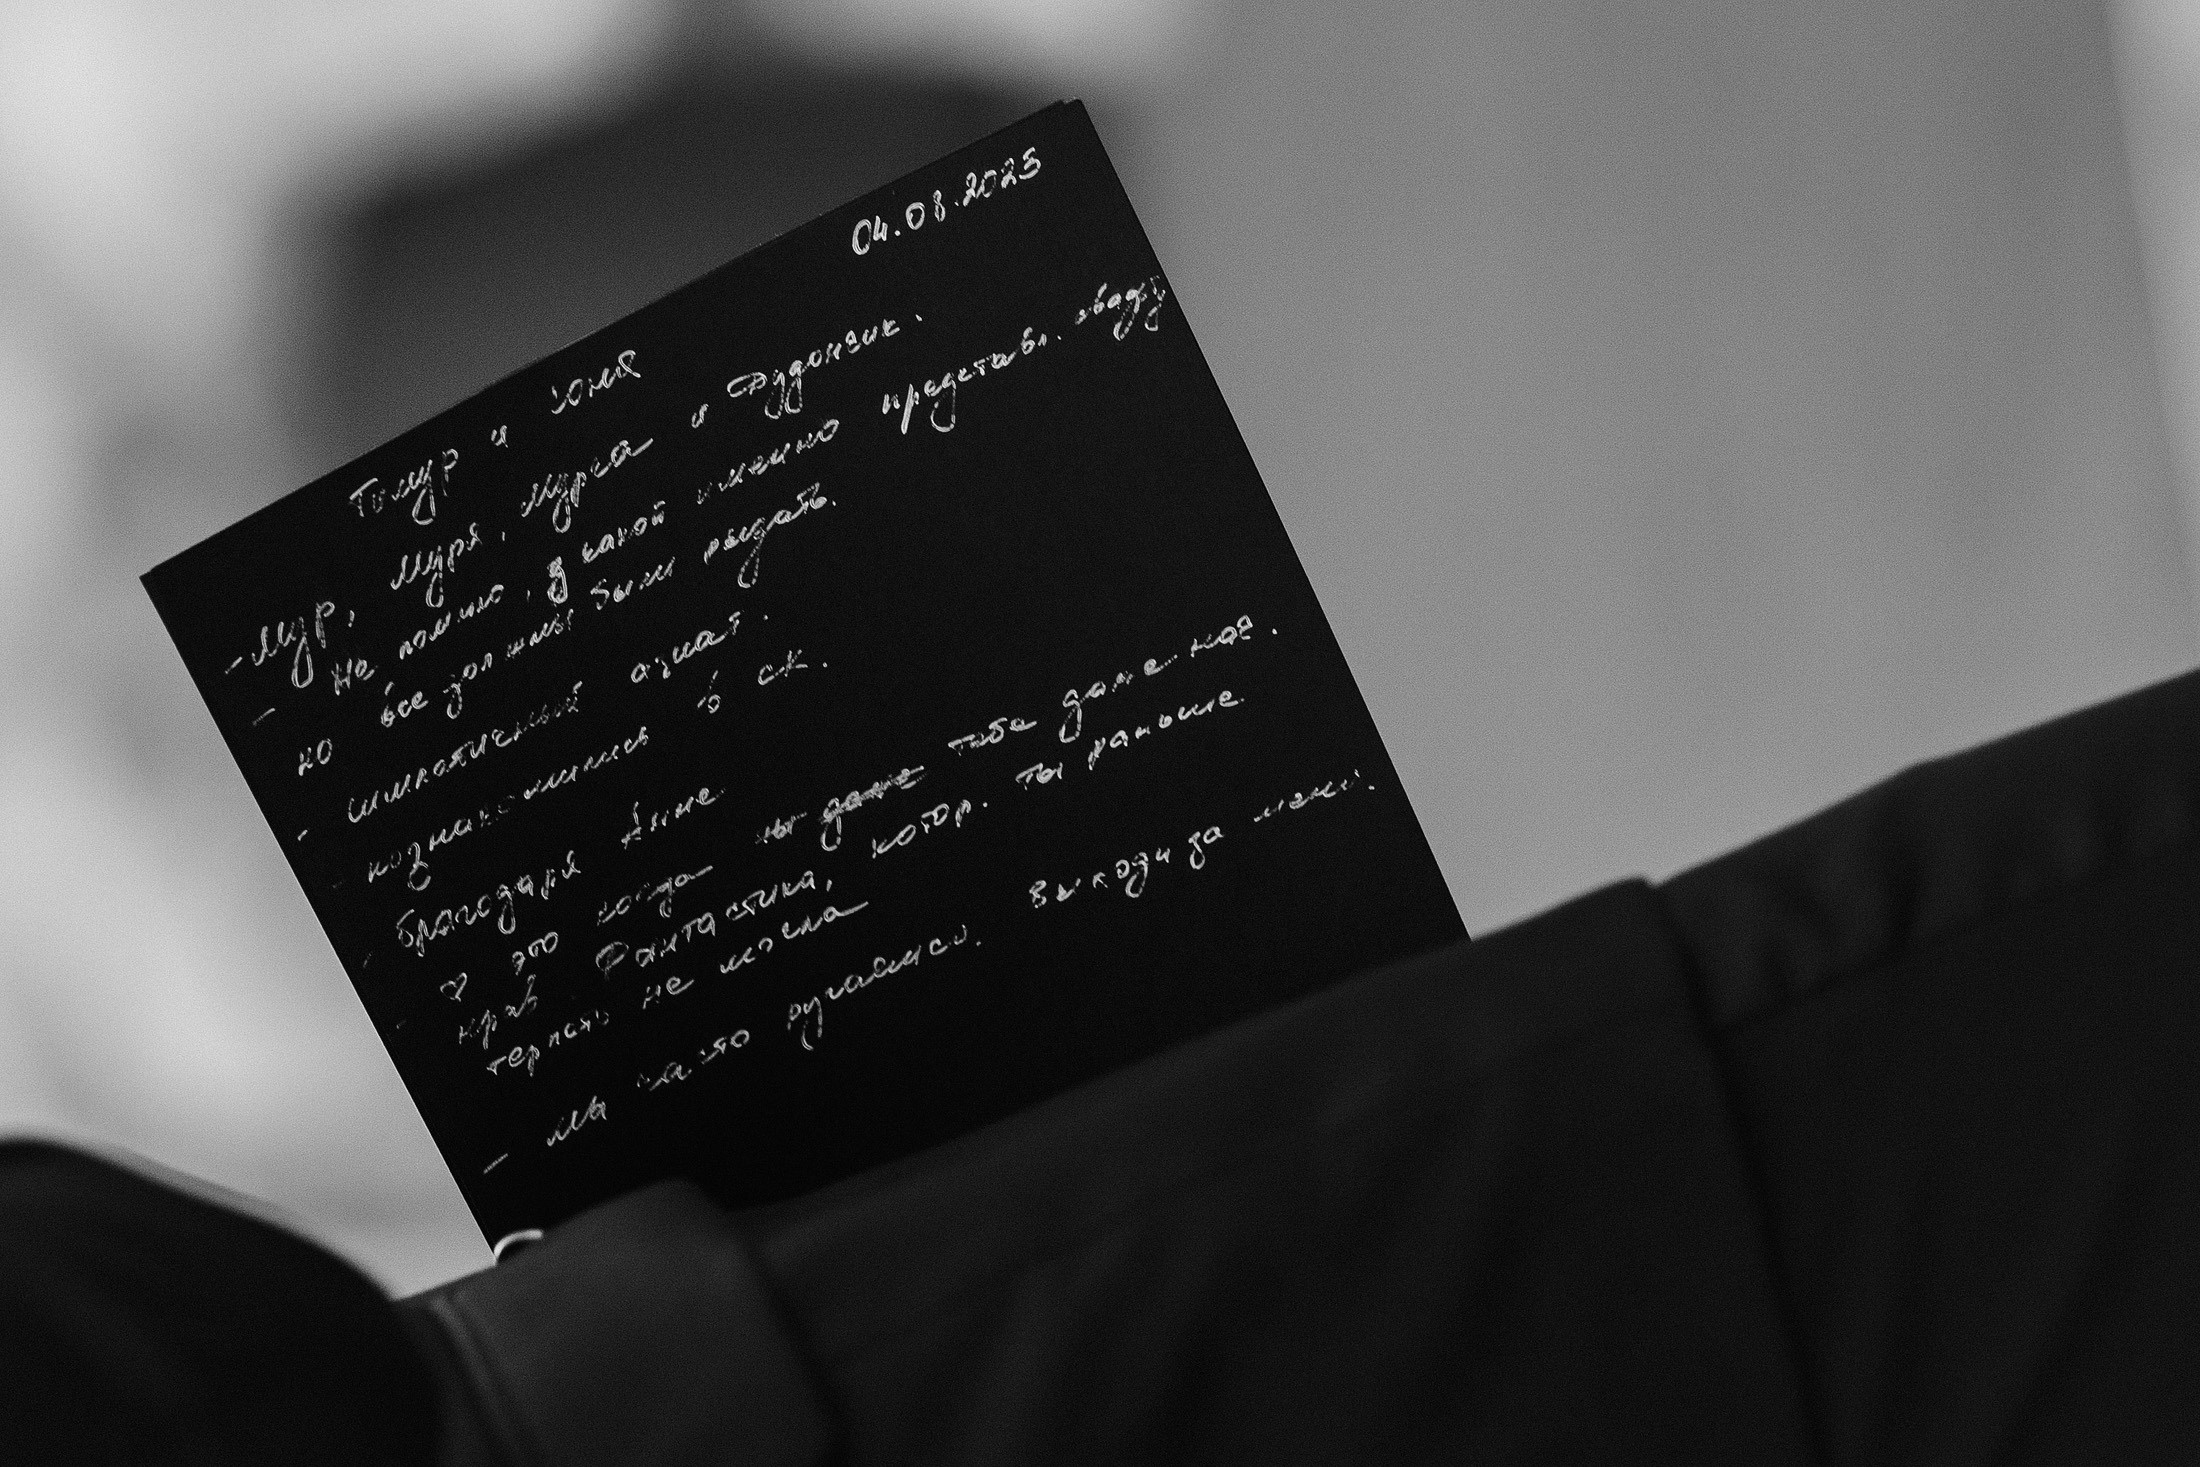 04.08.2025
Тимур и Юлия
- Мур, Муря, Мурса и Фудонгик.
- Не помню, у какой именно представл. свадьбу
но все должны были рыдать.
- симпатичный азиат.
- познакомились в ск.
- благодаря Анне
- ♡ это когда тебе даже нра
нрав фантастика, котор. ты раньше
терпеть не могла
- мы часто ругаемся. выходи за меня.